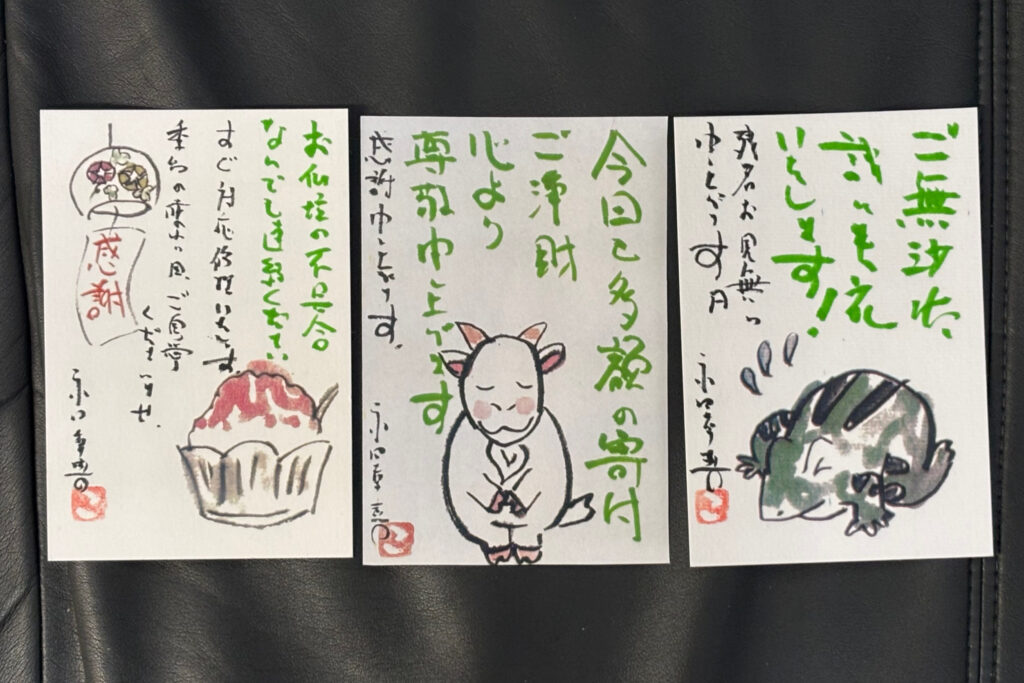 お仏壇の不具合
なんでも連絡ください
すぐ対応修理いたします
季節の変わり目、ご自愛
くださいませ。
感謝。
今回も多額の寄付
ご浄財
心より
尊敬申し上げます
感謝申し上げます。
ご無沙汰
いたします!
残暑お見舞い
申し上げます